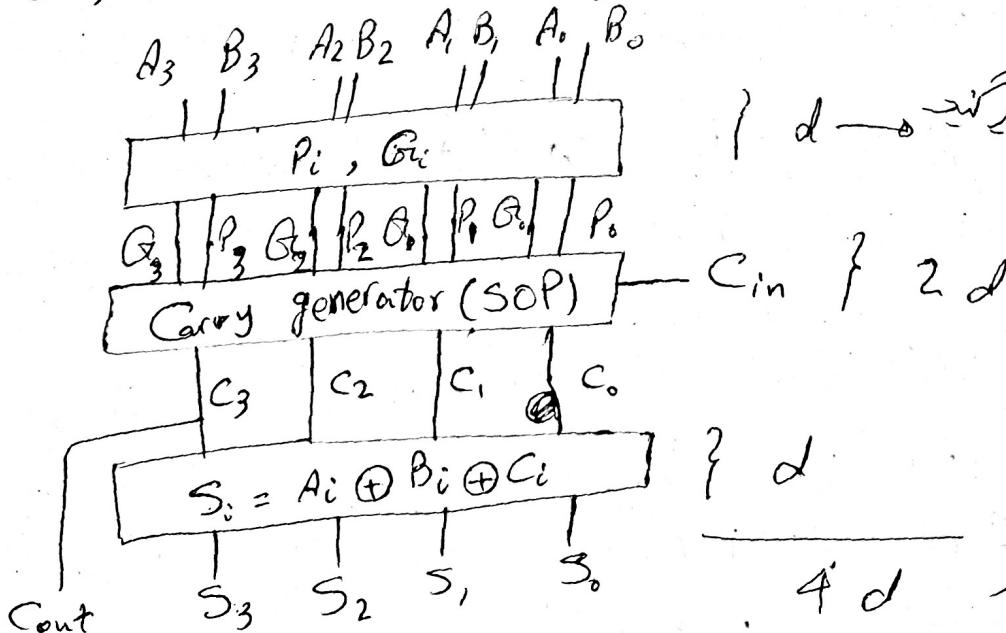 A3 B3 A2 B2 A1 B1 A0 B0
Pi , Gi } d →
G3 P3 G2 P2 G1 P1 G0 P0
Carry generator (SOP) Cin } 2 d
C3 C2 C1 C0
Si = Ai ⊕ Bi ⊕ Ci } d
Cout S3 S2 S1 S0 4 d